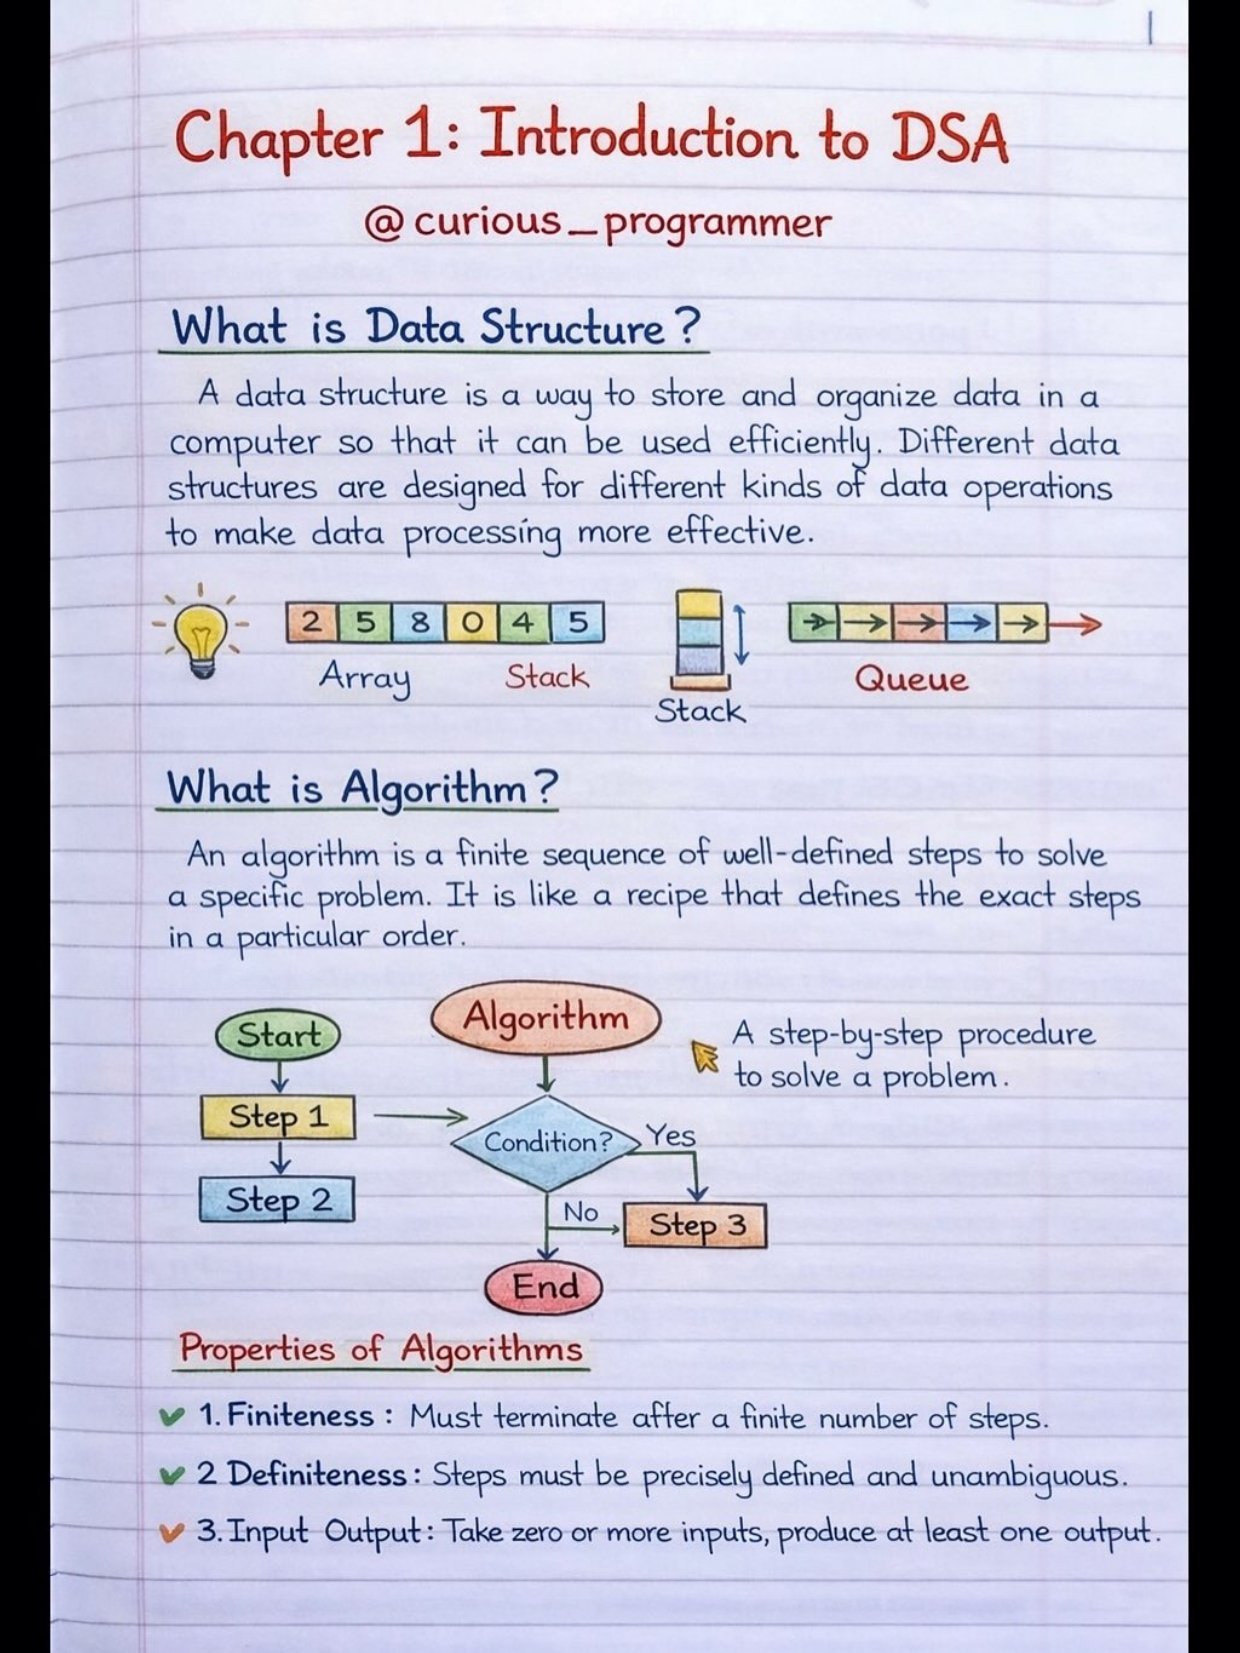 Chapter 1: Introduction to DSA
@curious_programmer
What is Data Structure?
A data structure is a way to store and organize data in a
computer so that it can be used efficiently. Different data
structures are designed for different kinds of data operations
to make data processing more effective.
2 5 8 0 4 5
Array Stack
Stack
Queue
What is Algorithm?
An algorithm is a finite sequence of well-defined steps to solve
a specific problem. It is like a recipe that defines the exact steps
in a particular order.
Start
Step 1
Step 2
Algorithm
Condition?
Yes
No
Step 3
End
A step-by-step procedure
to solve a problem.
Properties of Algorithms
1. Finiteness: Must terminate after a finite number of steps.
2 Definiteness: Steps must be precisely defined and unambiguous.
3. Input Output: Take zero or more inputs, produce at least one output.